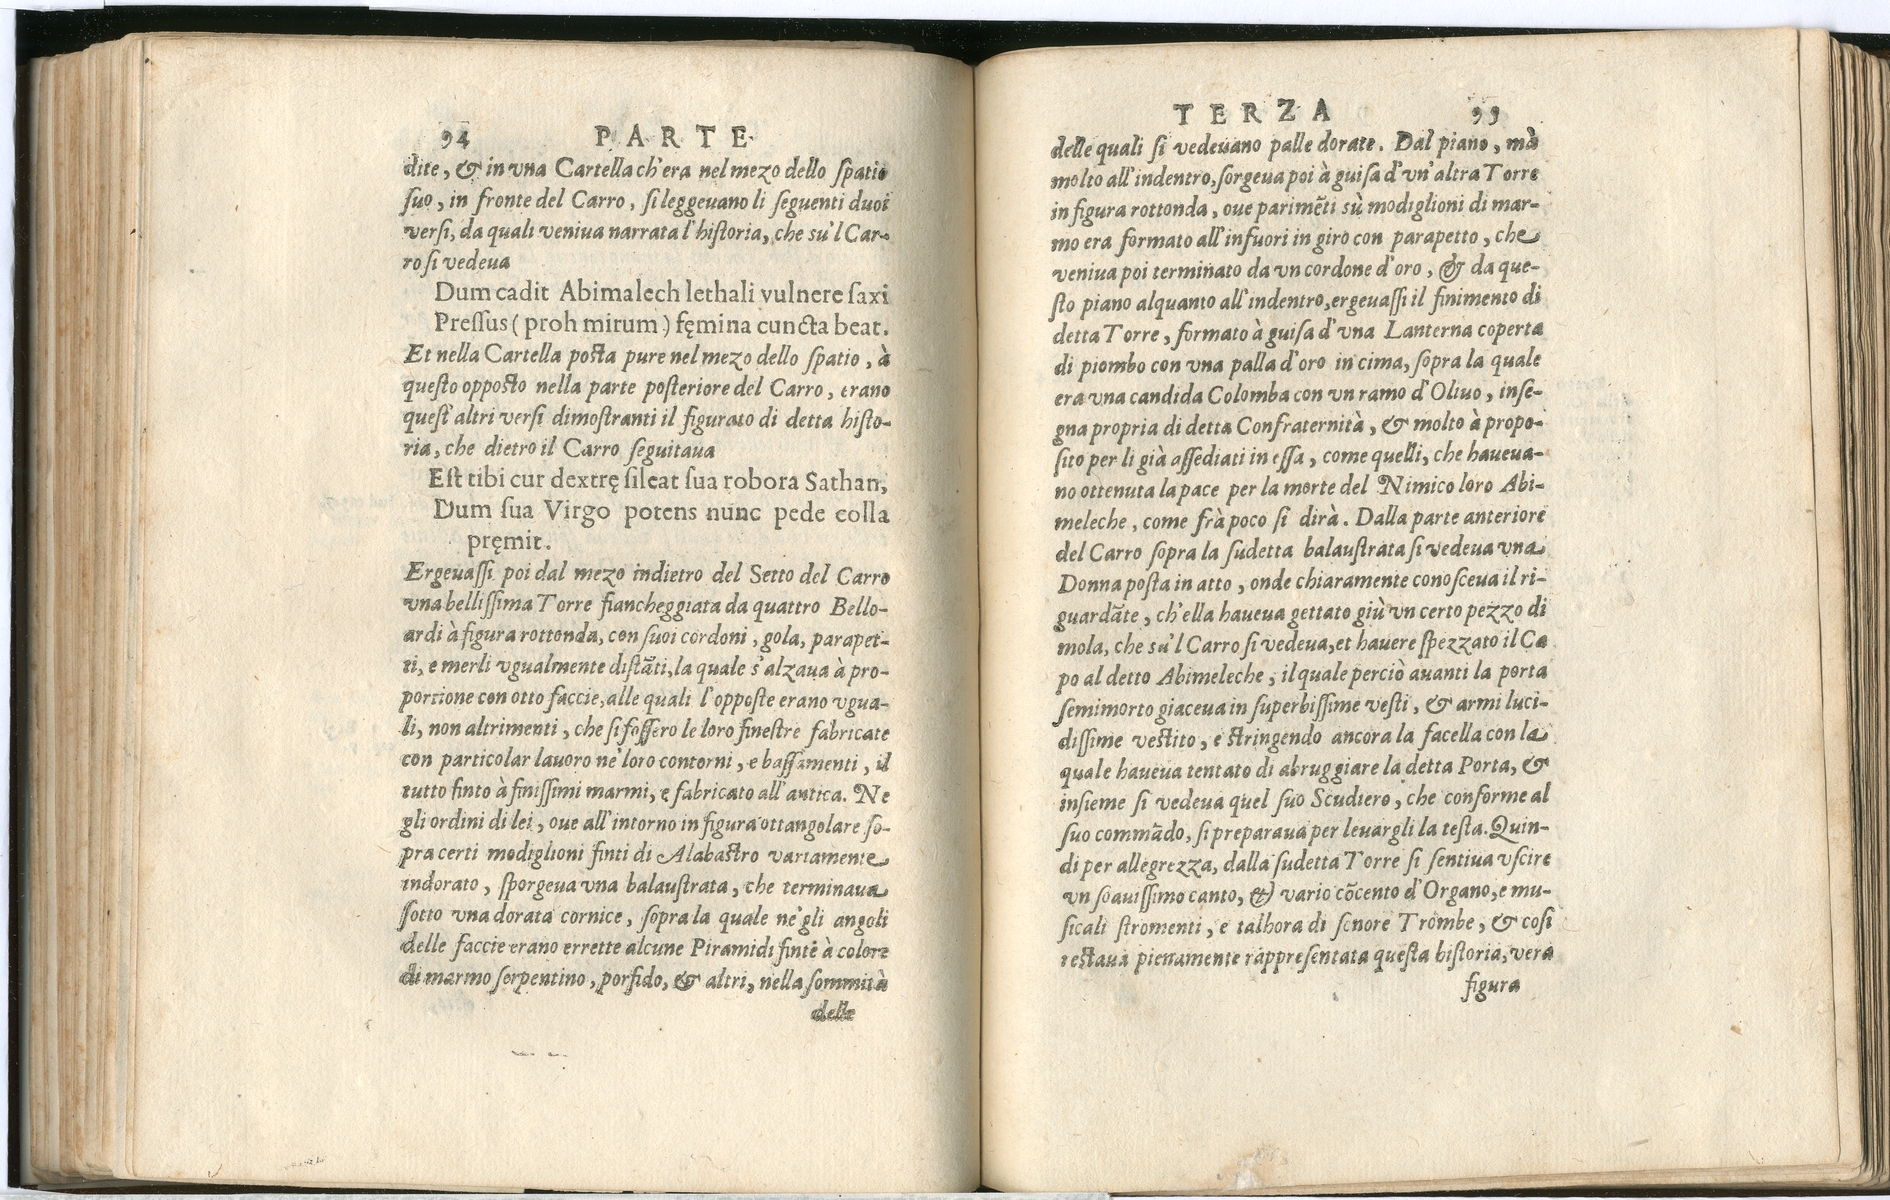 94 PARTE
dite, & in vna Cartella ch'era nel mezo dello spatio
suo, in fronte del Carro, si leggeuano li seguenti duoi
versi, da quali veniua narrata l'historia, che su'l Car-
ro si vedeua
Dum cadit Abimalech lethali vulnere saxi
Pressus (proh mirum) fęmina cuncta beat.
Et nella Cartella posta pure nel mezo dello spatio, à
questo opposto nella parte posteriore del Carro, erano
quest'altri versi dimostranti il figurato di detta histo-
ria, che dietro il Carro seguitaua
Est tibi cur dextrę sileat sua robora Sathan,
Dum sua Virgo potens nunc pede colla
pręmit.
Ergeuassi poi dal mezo indietro del Setto del Carro
vna bellissima Torre fiancheggiata da quattro Bello-
ardi à figura rottonda, con suoi cordoni, gola, parapet-
ti, e merli vgualmente distāti, la quale s'alzaua à pro-
portione con otto faccie, alle quali l'opposte erano vgua-
li, non altrimenti, che si fossero le loro finestre fabricate
con particolar lauoro ne'loro contorni, e bassamenti, il
tutto finto à finissimi marmi, e fabricato all'antica. Ne
gli ordini di lei, oue all'intorno in figura ottangolare so-
pra certi modiglioni finti di Alabastro variamente
indorato, sporgeua vna balaustrata, che terminaua
sotto vna dorata cornice, sopra la quale ne'gli angoli
delle faccie erano errette alcune Piramidi finte à colore
di marmo serpentino, porfido, & altri, nella sommità
delle
TERZA 99
delle quali si vedeuano palle dorate. Dal piano, mà
molto all'indentro, sorgeua poi à guisa d'vn'altra Torre
in figura rottonda, oue parimēti sù modiglioni di mar-
mo era formato all'infuori in giro con parapetto, che
veniua poi terminato da vn cordone d'oro, & da que-
sto piano alquanto all'indentro, ergeuassi il finimento di
detta Torre, formato à guisa d'vna Lanterna coperta
di piombo con vna palla d'oro in cima, sopra la quale
era vna candida Colomba con vn ramo d'Oliuo, inse-
gna propria di detta Confraternità, & molto à propo-
sito per li già assediati in essa, come quelli, che haueua-
no ottenuta la pace per la morte del Nimico loro Abi-
meleche, come frà poco si dirà. Dalla parte anteriore
del Carro sopra la sudetta balaustrata si vedeua vna
Donna posta in atto, onde chiaramente conosceua il ri-
guardāte, ch'ella haueua gettato giù vn certo pezzo di
mola, che su'l Carro si vedeua, et hauere spezzato il Ca
po al detto Abimeleche, il quale perciò auanti la porta
semimorto giaceua in superbissime vesti, & armi luci-
dissime vestito, e stringendo ancora la facella con la
quale haueua tentato di abruggiare la detta Porta, &
insieme si vedeua quel suo Scudiero, che conforme al
suo commādo, si preparaua per leuargli la testa. Quin-
di per allegrezza, dalla sudetta Torre si sentiua vscire
vn soauissimo canto, & vario cōcento d'Organo, e mu-
sicali stromenti, e talhora di sonore Trombe, & così
restaua pienamente rappresentata questa historia, vera
figura